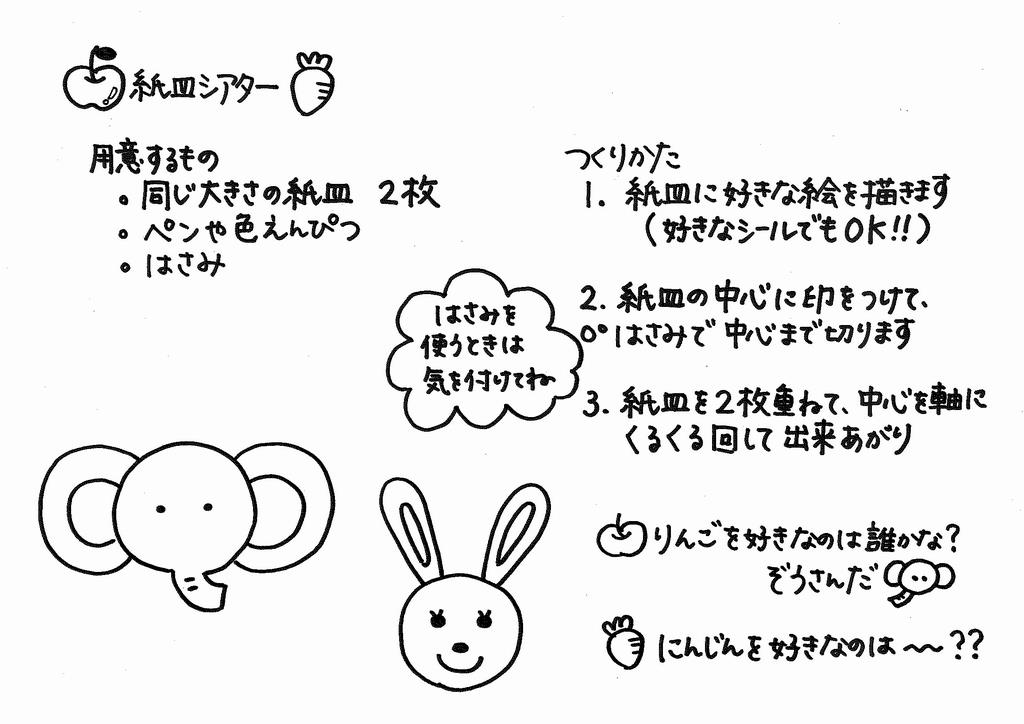 紙皿シアター
用意するもの
。同じ大きさの紙皿 2枚
。ペンや色えんぴつ
。はさみ
はさみを
使うときは
気を付けてね
つくりかた
1. 紙皿に好きな絵を描きます
(好きなシールでもOK!!)
2. 紙皿の中心に印をつけて、
はさみで中心まで切ります
3. 紙皿を2枚重ねて、中心を軸に
くるくる回して出来あがり
りんごを好きなのは誰かな?
ぞうさんだ
にんじんを好きなのは〜〜??